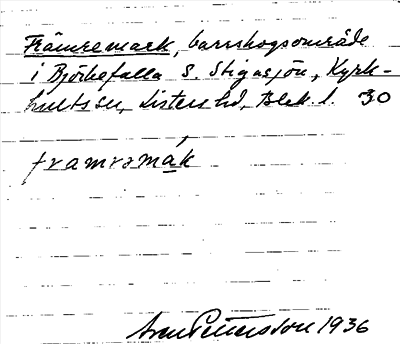 Främremark, barrskogsområde
i Björkefalla S. Stigasjön, Kyrk-
hults sn, Listers hd, Blek. l. 30
framrəmák
Pettersson 1936